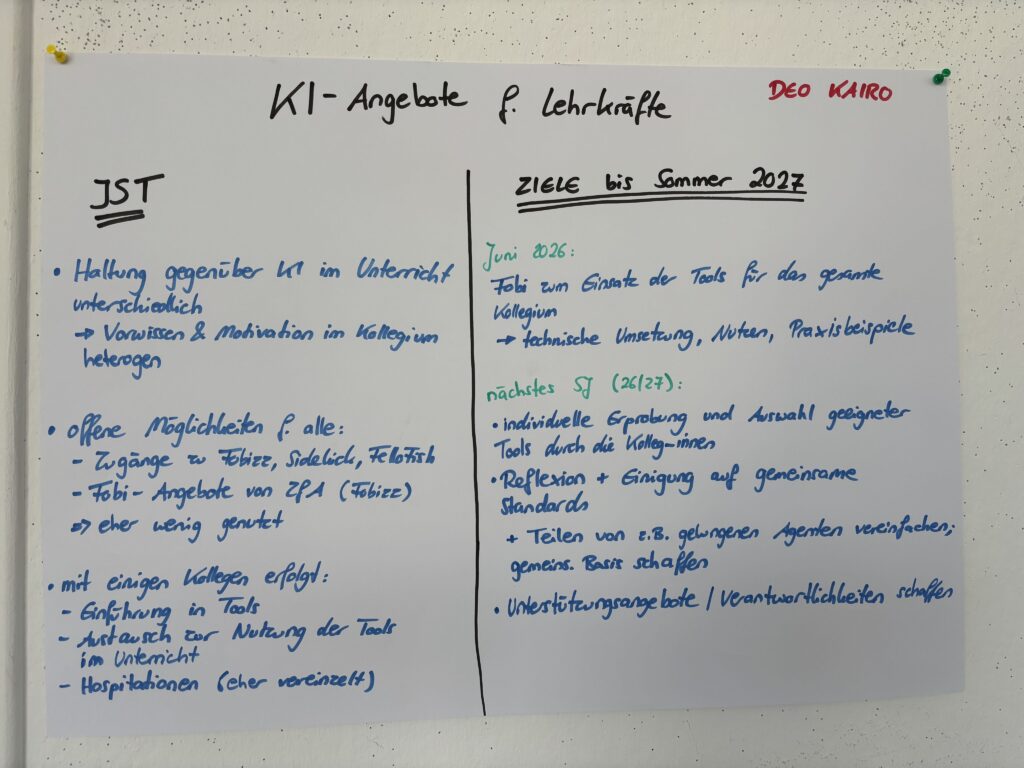 KI-Angebote f. Lehrkräfte
DEO KAIRO
IST
• Haltung gegenüber KI im Unterricht
unterschiedlich
→ Vorwissen & Motivation im Kollegium
heterogen
• offene Möglichkeiten f. alle:
- Zugänge zu Fobizz, Sidekick, FelloFish
- Fobi-Angebote von ZfA (Fobizz)
⇒ eher wenig genutzt
• mit einigen Kollegen erfolgt:
- Einführung in Tools
- Austausch zur Nutzung der Tools
im Unterricht
- Hospitationen (eher vereinzelt)
ZIELE bis Sommer 2027
Juni 2026:
Fobi zum Einsatz der Tools für das gesamte
Kollegium
→ technische Umsetzung, Nutzen, Praxisbeispiele
nächstes SJ (26/27):
• individuelle Erprobung und Auswahl geeigneter
Tools durch die Kolleg-innen
• Reflexion + Einigung auf gemeinsame
Standards
+ Teilen von z.B. gelungenen Agenten vereinfachen;
gemeins. Basis schaffen
• Unterstützungsangebote / Verantwortlichkeiten schaffen